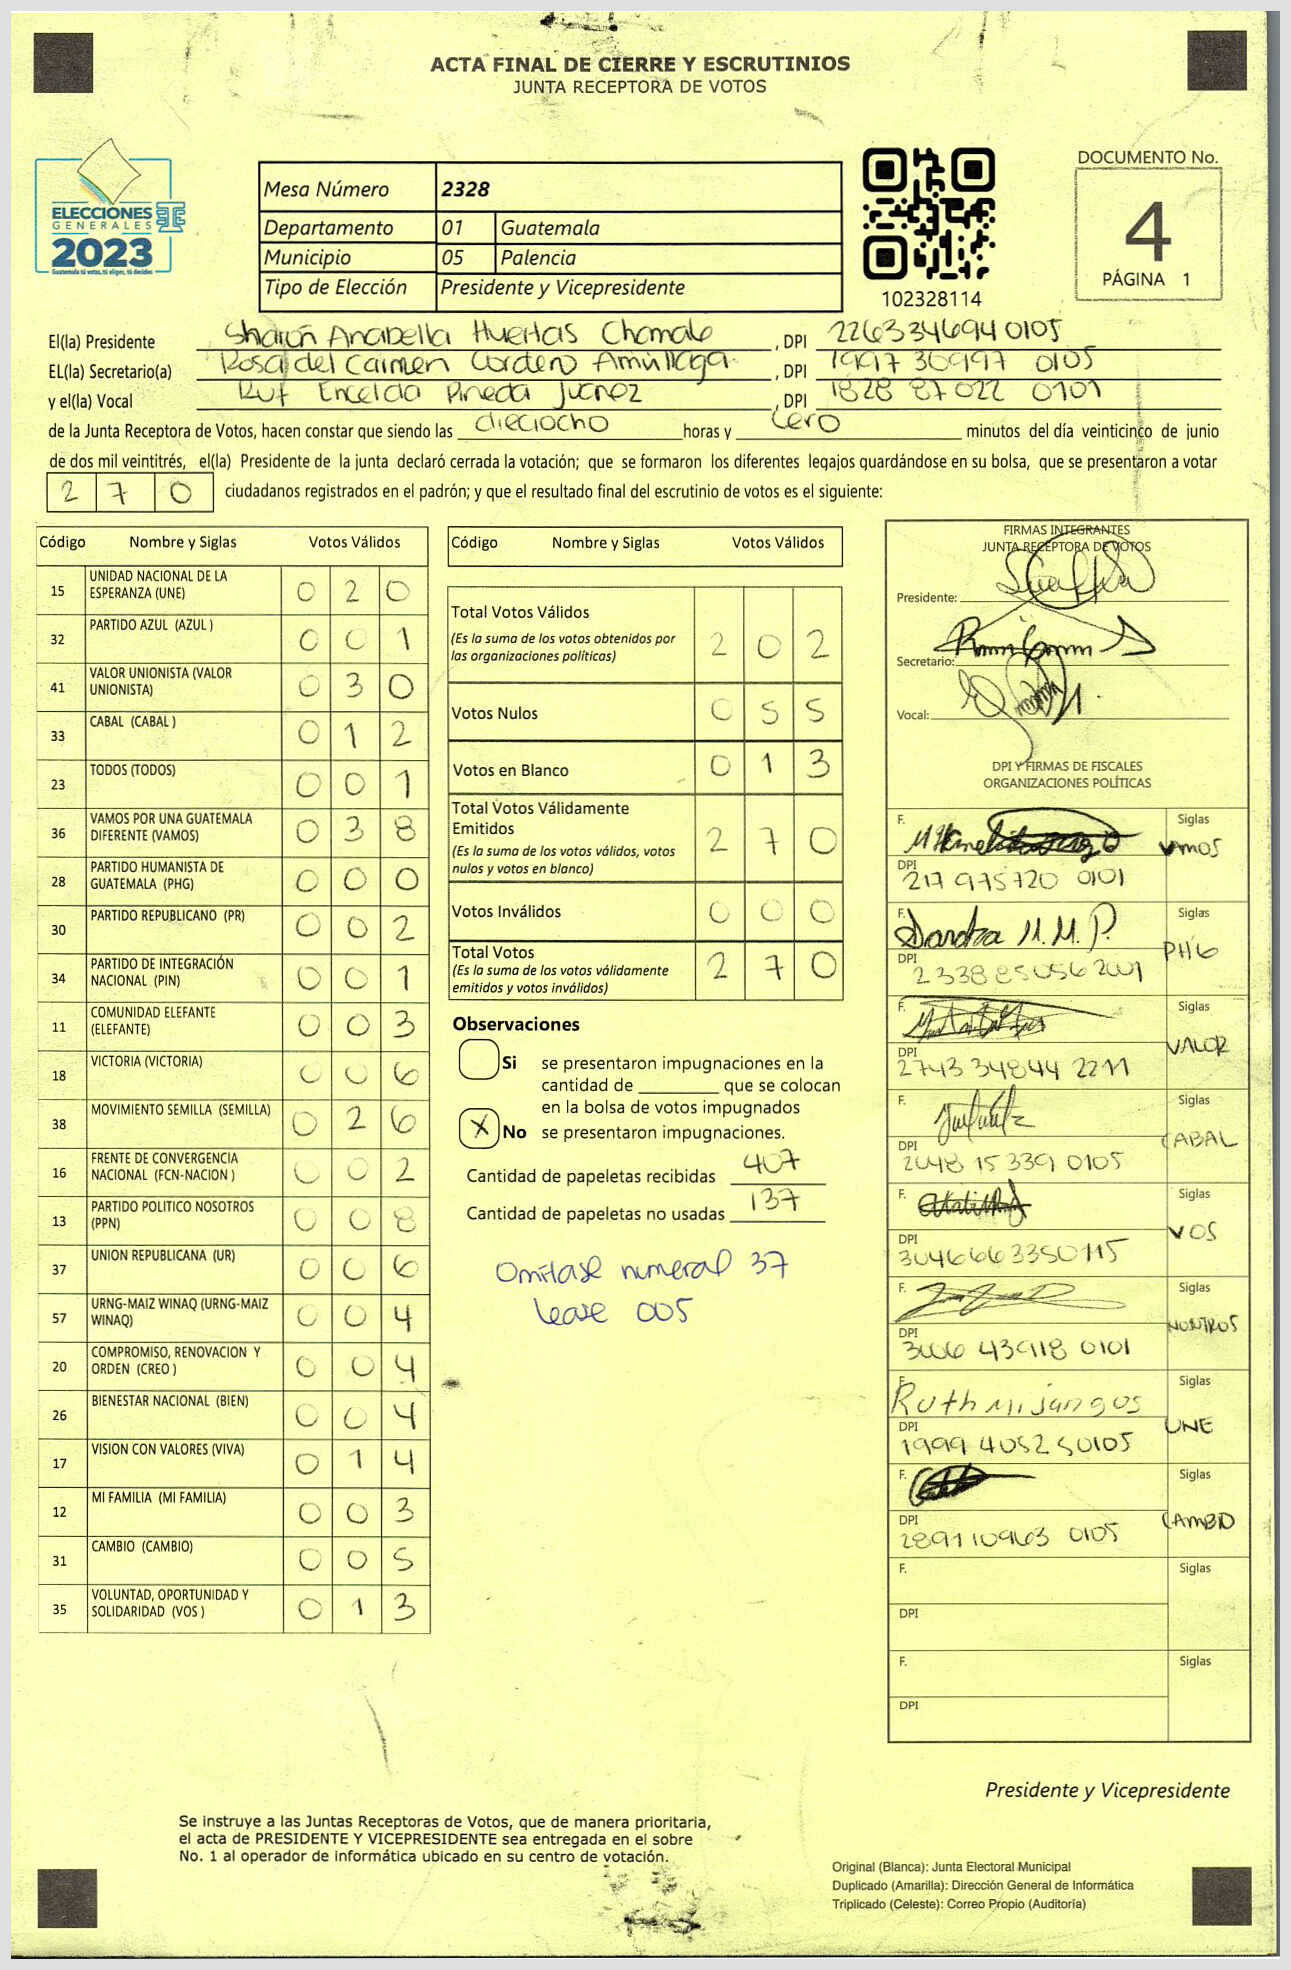 ACTA FINAL DE CIERRE Y ESCRUTINIOS
JUNTA RECEPTORA DE VOTOS
ELECCIONES
GENERALES
2023
Guatemala tú votas, tú eliges, tú decides
Mesa Número 2328
Departamento 01 Guatemala
Municipio 05 Palencia
Tipo de Elección Presidente y Vicepresidente
102328114
DOCUMENTO No.
4
PÁGINA 1
El(la) Presidente Sharon Anabella Huertas Chamale , DPI 2263346940105
EL(la) Secretario(a) Rosa del Carmen Cordero , DPI 1997 30997 0105
y el(la) Vocal Rut Pineda Juarez , DPI 1828 87022 0101
de la Junta Receptora de Votos, hacen constar que siendo las dieciocho horas y cero minutos del día veinticinco de junio
de dos mil veintitrés, el(la) Presidente de la junta declaró cerrada la votación; que se formaron los diferentes legajos guardándose en su bolsa, que se presentaron a votar
2 7 0 ciudadanos registrados en el padrón; y que el resultado final del escrutinio de votos es el siguiente:
Código Nombre y Siglas Votos Válidos
15 UNIDAD NACIONAL DE LA ESPERANZA (UNE) 0 2 0
32 PARTIDO AZUL (AZUL ) 0 0 1
41 VALOR UNIONISTA (VALOR UNIONISTA) 0 3 0
33 CABAL (CABAL ) 0 1 2
23 TODOS (TODOS) 0 0 1
36 VAMOS POR UNA GUATEMALA DIFERENTE (VAMOS) 0 3 8
28 PARTIDO HUMANISTA DE GUATEMALA (PHG) 0 0 0
30 PARTIDO REPUBLICANO (PR) 0 0 2
34 PARTIDO DE INTEGRACIÓN NACIONAL (PIN) 0 0 1
11 COMUNIDAD ELEFANTE (ELEFANTE) 0 0 3
18 VICTORIA (VICTORIA) 0 0 6
38 MOVIMIENTO SEMILLA (SEMILLA) 0 2 6
16 FRENTE DE CONVERGENCIA NACIONAL (FCN-NACION ) 0 0 2
13 PARTIDO POLITICO NOSOTROS (PPN) 0 0 8
37 UNION REPUBLICANA (UR) 0 0 6
57 URNG-MAIZ WINAQ (URNG-MAIZ WINAQ) 0 0 4
20 COMPROMISO, RENOVACION Y ORDEN (CREO ) 0 0 4
26 BIENESTAR NACIONAL (BIEN) 0 0 4
17 VISION CON VALORES (VIVA) 0 1 4
12 MI FAMILIA (MI FAMILIA) 0 0 3
31 CAMBIO (CAMBIO) 0 0 5
35 VOLUNTAD, OPORTUNIDAD Y SOLIDARIDAD (VOS ) 0 1 3
Código Nombre y Siglas Votos Válidos
Total Votos Válidos 2 0 2
(Es la suma de los votos obtenidos por
las organizaciones políticas)
Votos Nulos 0 5 5
Votos en Blanco 0 1 3
Total Votos Válidamente
Emitidos 2 7 0
(Es la suma de los votos válidos, votos
nulos y votos en blanco)
Votos Inválidos 0 0 0
Total Votos 2 7 0
(Es la suma de los votos válidamente
emitidos y votos inválidos)
Observaciones
Si se presentaron impugnaciones en la
cantidad de ________ que se colocan
en la bolsa de votos impugnados
X No se presentaron impugnaciones.
Cantidad de papeletas recibidas 407
Cantidad de papeletas no usadas 137
Omitase numeral 37
lease 005
FIRMAS INTEGRANTES
JUNTA RECEPTORA DE VOTOS
Presidente:
Secretario:
Vocal:
DPI Y FIRMAS DE FISCALES
ORGANIZACIONES POLÍTICAS
F. Siglas VAMOS
DPI 217 975720 0101
F. Sandra M. M. P. Siglas PHG
DPI 2338 85056 2001
F. Siglas VALOR
DPI 2743 34844 2211
F. Siglas CABAL
DPI 2048 15 339 0105
F. Siglas VOS
DPI 3046663350115
F. Siglas
DPI 3006 43918 0101
F. Ruth Mijangos Siglas UNE
DPI 1999 40525 0105
F. Siglas CAMBIO
DPI 289110963 0105
F. Siglas
DPI
F. Siglas
DPI
Presidente y Vicepresidente
Se instruye a las Juntas Receptoras de Votos, que de manera prioritaria,
el acta de PRESIDENTE Y VICEPRESIDENTE sea entregada en el sobre
No. 1 al operador de informática ubicado en su centro de votación.
Original (Blanca): Junta Electoral Municipal
Duplicado (Amarilla): Dirección General de Informática
Triplicado (Celeste): Correo Propio (Auditoría)